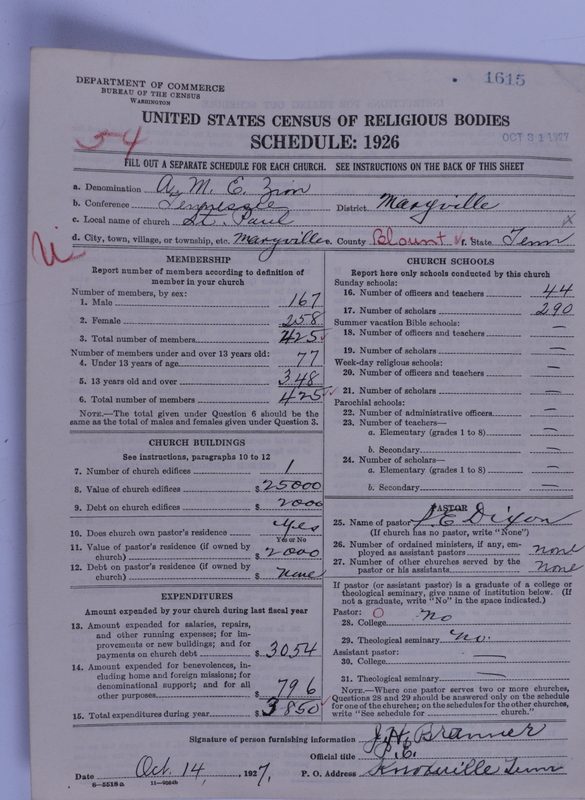 1615
DEPARTMENT OF COMMERCE
BUREAU OF THE CENSUS
WASHINGTON
UNITED STATES CENSUS OF RELIGIOUS BODIES
54
SCHEDULE: 1926
OCT 31 1927
FILL OUT A SEPARATE SCHEDULE FOR EACH CHURCH. SEE INSTRUCTIONS ON THE BACK OF THIS SHEET
a. Denomination A. M. E. Zion
b. Conference Tennessee District Maryville
c. Local name of church St. Paul
d. City, town, village, or township, etc. Maryville e. County Blount f. State Tenn
MEMBERSHIP
Report number of members according to definition of
member in your church
Number of members, by sex:
1. Male 167
2. Female 258
3. Total number of members 425
Number of members under and over 13 years old:
4. Under 13 years of age 77
5. 13 years old and over 348
6. Total number of members 425
NOTE.—The total given under Question 6 should be the
same as the total of males and females given under Question 3.
CHURCH BUILDINGS
See instructions, paragraphs 10 to 12
7. Number of church edifices 1
8. Value of church edifices $25000
9. Debt on church edifices $2000
10. Does church own pastor's residence? Yes
Yes or No
11. Value of pastor's residence (if owned by
church) $2000
12. Debt on pastor's residence (if owned by
church) $none
EXPENDITURES
Amount expended by your church during last fiscal year
13. Amount expended for salaries, repairs,
and other running expenses; for im-
provements or new buildings; and for
payments on church debt $3054
14. Amount expended for benevolences, in-
cluding home and foreign missions; for
denominational support; and for all
other purposes $796
15. Total expenditures during year $3850
CHURCH SCHOOLS
Report here only schools conducted by this church
Sunday schools:
16. Number of officers and teachers 44
17. Number of scholars 290
Summer vacation Bible schools:
18. Number of officers and teachers —
19. Number of scholars —
Week-day religious schools:
20. Number of officers and teachers —
21. Number of scholars —
Parochial schools:
22. Number of administrative officers —
23. Number of teachers—
a. Elementary (grades 1 to 8) —
b. Secondary —
24. Number of scholars—
a. Elementary (grades 1 to 8) —
b. Secondary —
PASTOR
25. Name of pastor J. E. Dixon
(If church has no pastor, write "None")
26. Number of ordained ministers, if any, em-
ployed as assistant pastors none
27. Number of other churches served by the
pastor or his assistants none
If pastor (or assistant pastor) is a graduate of a college or
theological seminary, give name of institution below. (If
not a graduate, write "No" in the space indicated.)
Pastor:
28. College no
29. Theological seminary no.
Assistant pastor:
30. College —
31. Theological seminary —
NOTE.—Where one pastor serves two or more churches,
Questions 28 and 29 should be answered only on the schedule
for one of the churches; on the schedules for the other churches,
write "See schedule for church."
Signature of person furnishing information J. H. Branner
Official title P. E.
Date Oct. 14, 1927, P. O. Address Knoxville Tenn